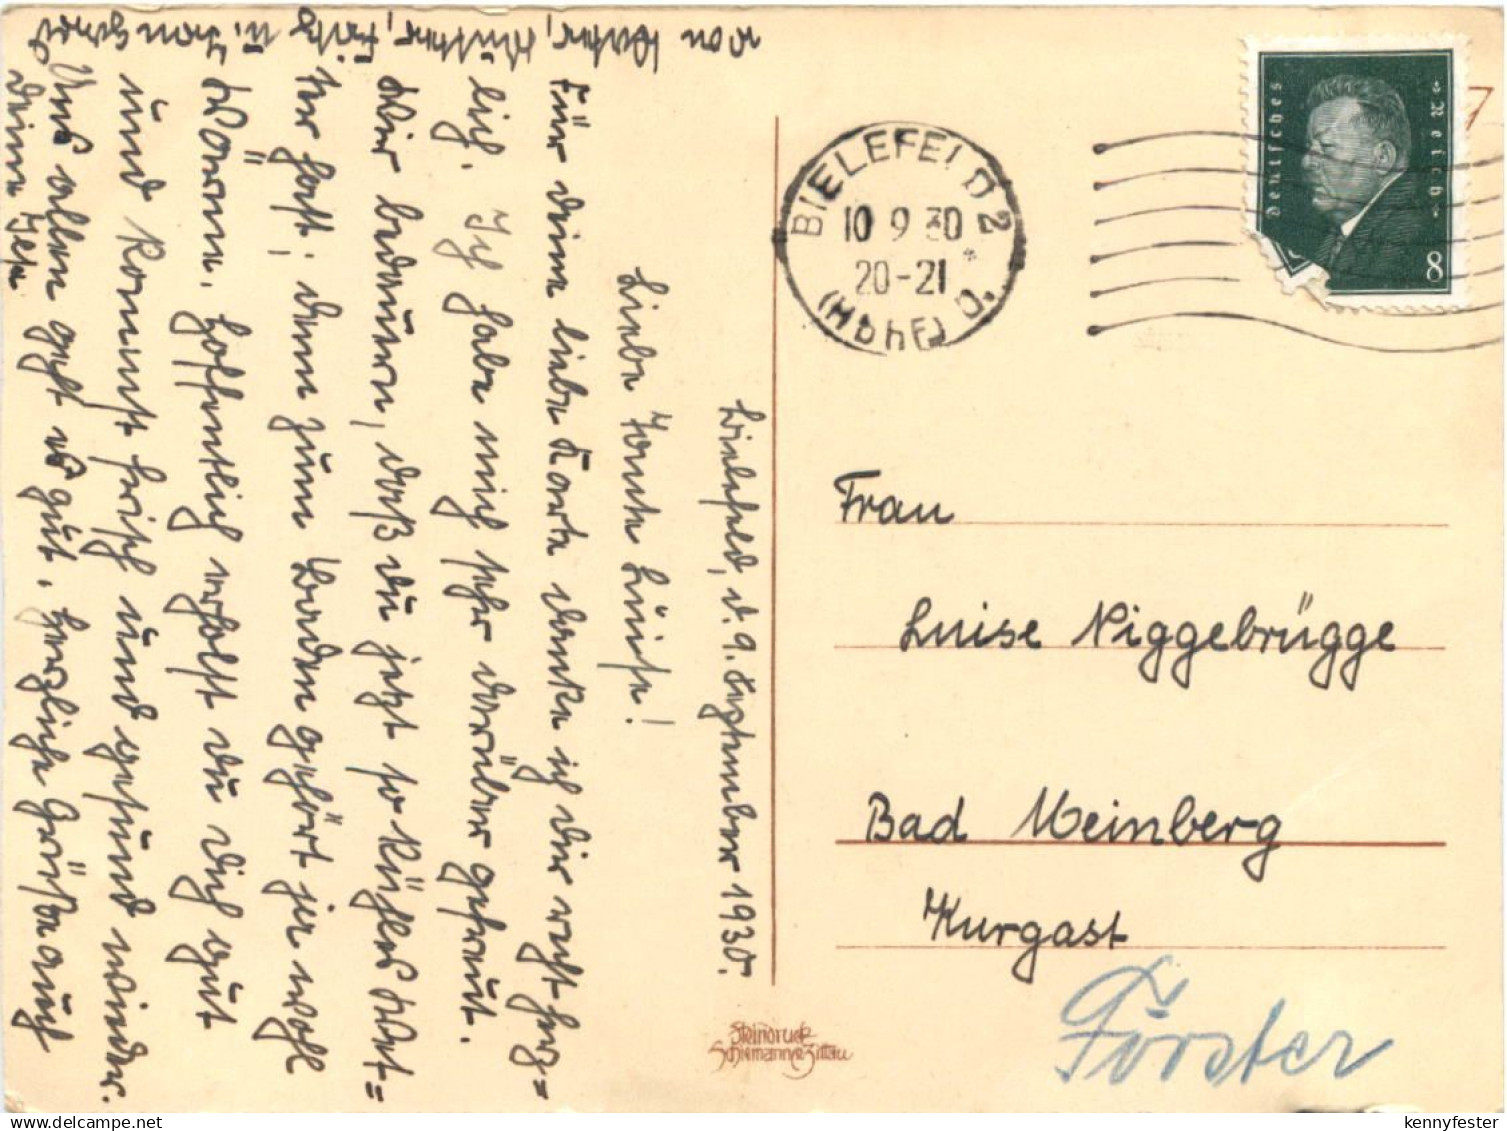 Bielefeld, d. 9. September 1930.
Liebe Tante Luise!
Für deine liebe Karte danke ich dir recht herz=
lich. Ich habe mich sehr darüber gefreut.
Wir bedauern, daß du jetzt so kühles Wet=
ter hast; denn zum Baden gehört ja wohl
Wärme. Hoffentlich erholst du dich gut
und kommst frisch und gesund wieder.
Uns allen geht es gut. Herzliche Grüße auch
von Vater, Mutter, Fritz u. von
deine
BIELEFELD 2
10 9 30
20-21
(Hbhf)
Deutsches Reich
8
7
Frau
Luise Niggebrügge
Bad Meinberg
Kurgast
Förster
Steindruck
Schiemann Zittau
kennyfester